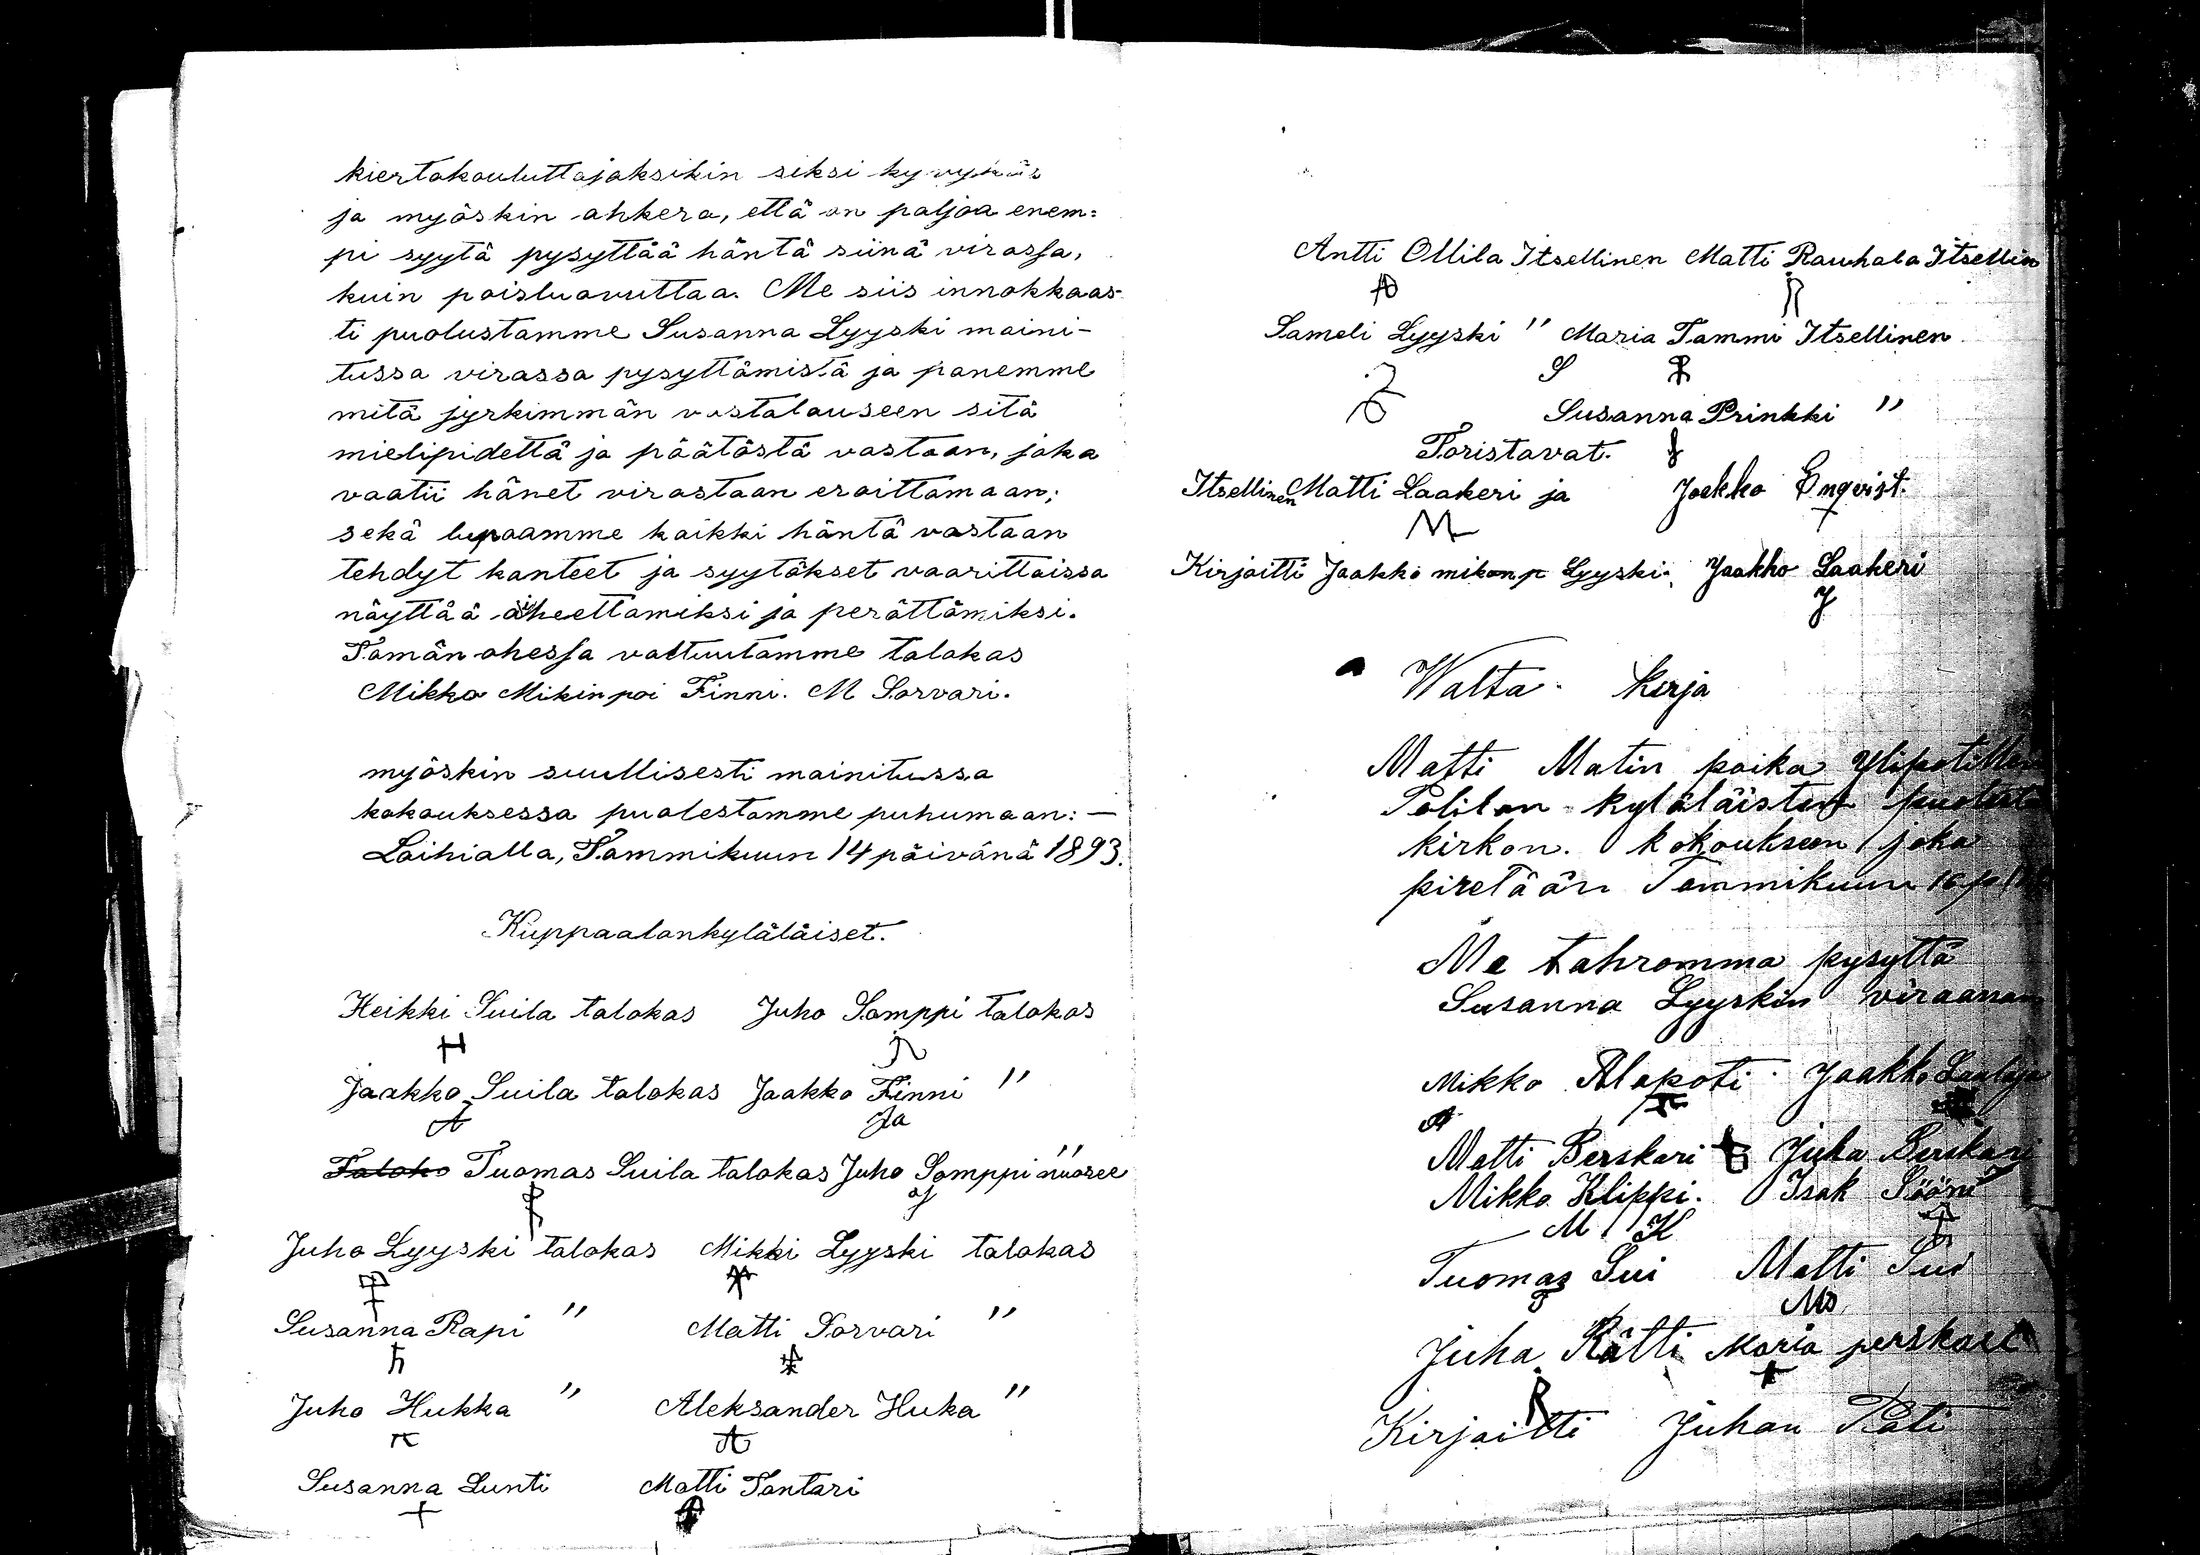 kiertokouluttajaksikin siksi kyvykäs
ja myöskin ahkera, että on paljoa enem=
pi syytä pysyttää häntä siinä virassa,
kuin poisluovuttaa. Me siis innokkaas-
ti puolustamme Susanna Lyyski maini-
tussa virassa pysyttämistä ja panemme
mitä jyrkimmän vastalauseen sitä
mielipidettä ja päätöstä vastaan, joka
vaatii hänet virastaan eroittamaan;
sekä lupaamme kaikki häntä vastaan
tehdyt kanteet ja syytökset vaarittaissa
näyttää aiheettamiksi ja perättömiksi.
Tämän ohessa valtuutamme talokas
Mikko Mikin poi Finni. M Sorvari.
myöskin suullisesti mainitussa
kokouksessa puolestamme puhumaan: —
Laihialla, Tammikuun 14 päivänä 1893.
Kuppaalankyläläiset.
Heikki Suila talokas Juho Somppi talokas
H
Jaakko Suila talokas Jaakko Finni "
Ja
Taloko Tuomas Suila talokas Juho Somppi nuoree
Juho Lyyski talokas Mikki Lyyski talokas
Susanna Rapi " Matti Sorvari "
Juho Hukka " Aleksander Huka "
Susanna Lunti Matti Tantari
Antti Ollila Itsellinen Matti Rauhala Itsellin
Sameli Lyyski " Maria Tammi Itsellinen
S
Susanna Prinkki "
Toristavat.
Itsellinen Matti Laakeri ja Jaekko Enqvist.
M
Kirjoitti Jaakko mikonp Lyyski. Jaakko Laakeri
J
Walta kirja
Matti Matin poika
kyläläisten puolesta
kirkon. kokoukseen joka
piretään Tammikuun 16 p
Me tahromma pysyttä
Susanna Lyyskin
Mikko Alapoti Jaakko
Matti Berskari Juha Berskari
Mikko Klippi. Isak Sööni
M K
Tuomas Sui Matti Sui
Ms
Juha Rätti Maria perskari
R
Kirjaitti Juhan Räti